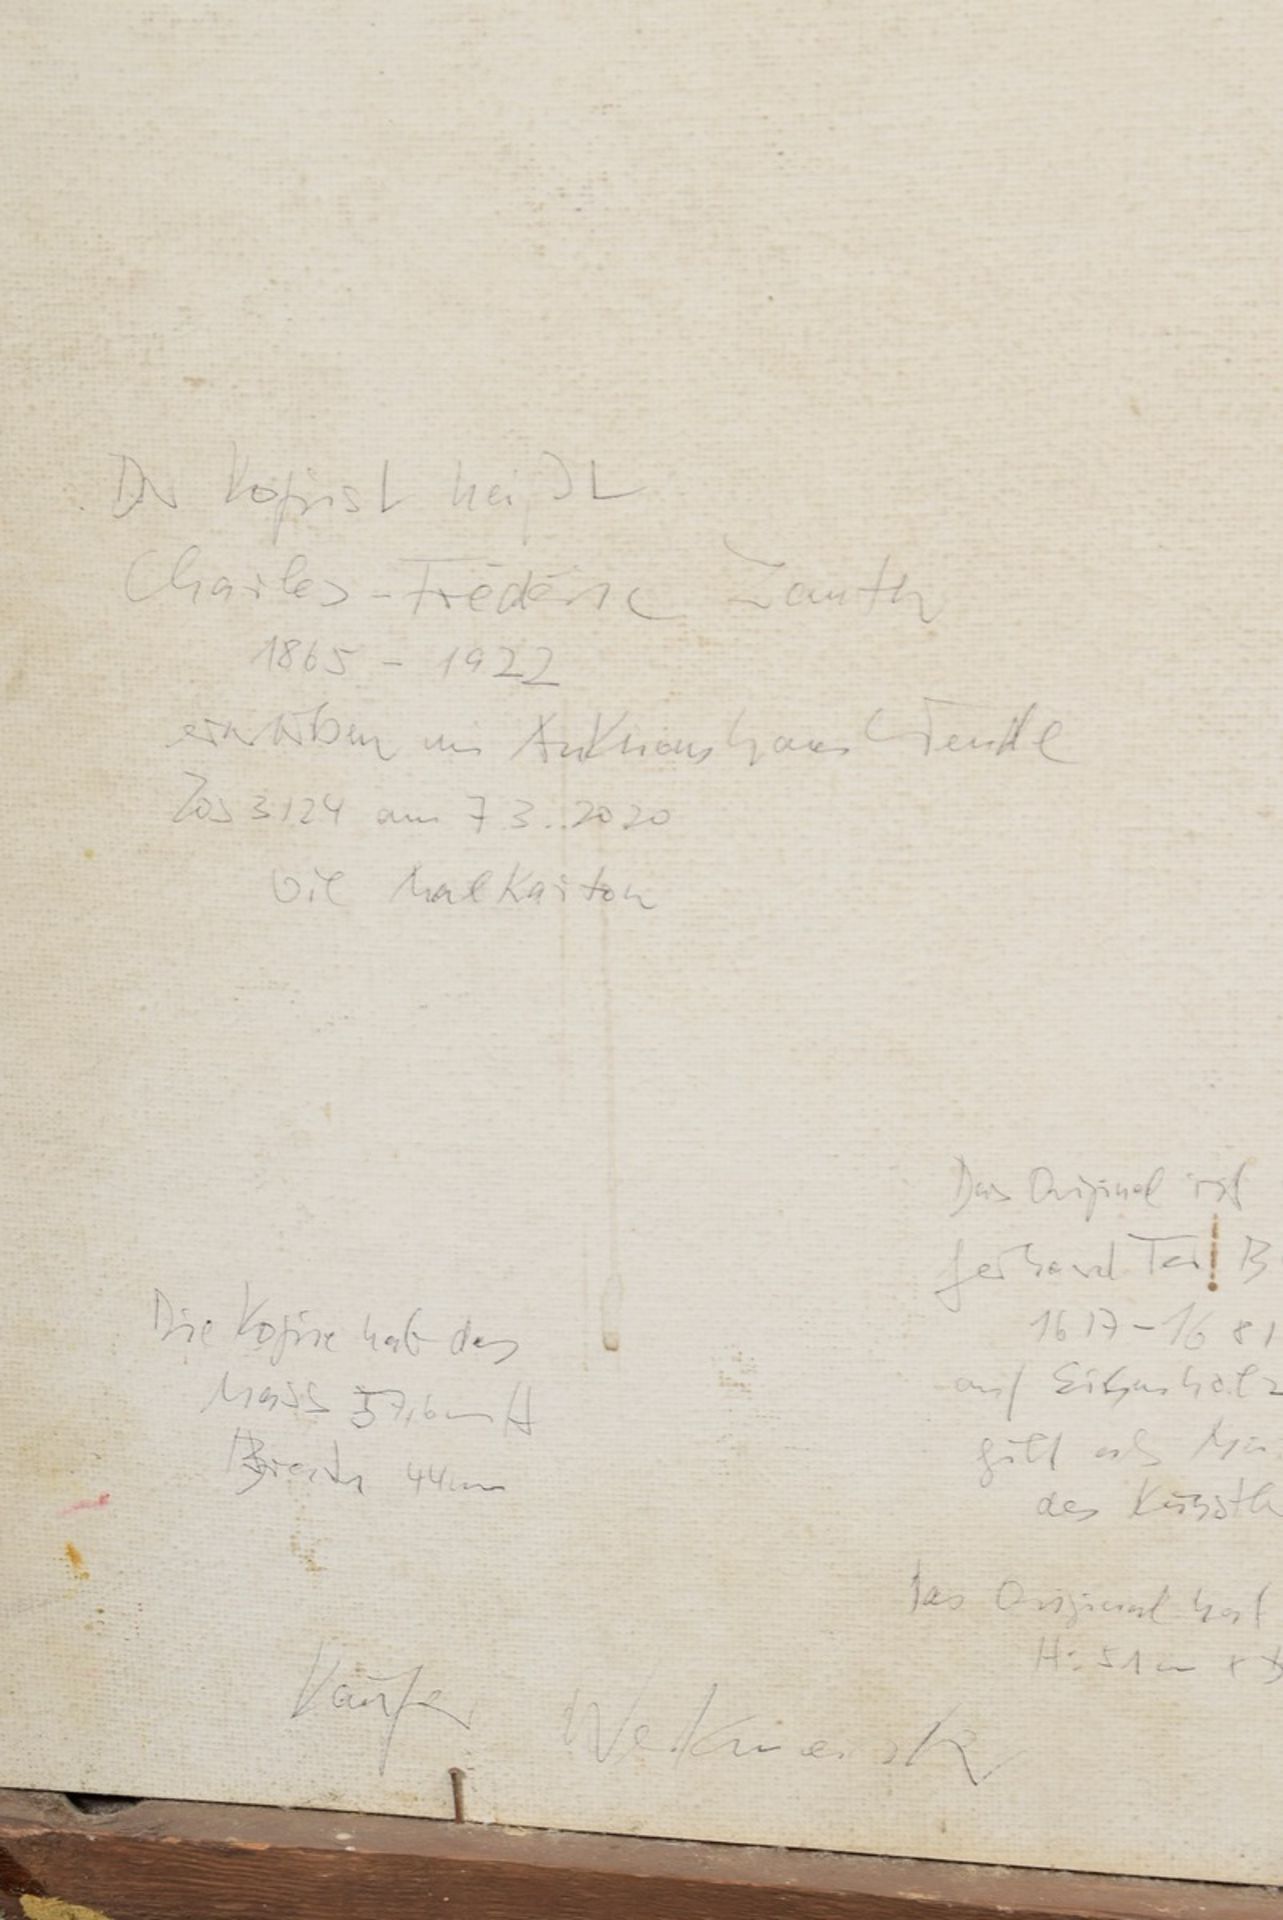 Der Kopist heißt
Charles-Frédéric Lauth
1865 - 1922
erworben im Auktionshaus Wendl
Los 3124 am 7.3..2020
Oil Malkarton
Die Kopie hat das
Mass 57,6cm H
Breite 44cm
Käufer
Das Original ist
Gerhard Ter B
1617-1681
auf Eichenholz
gilt als
des Künstle
Das Original hat
H: 51cm x B